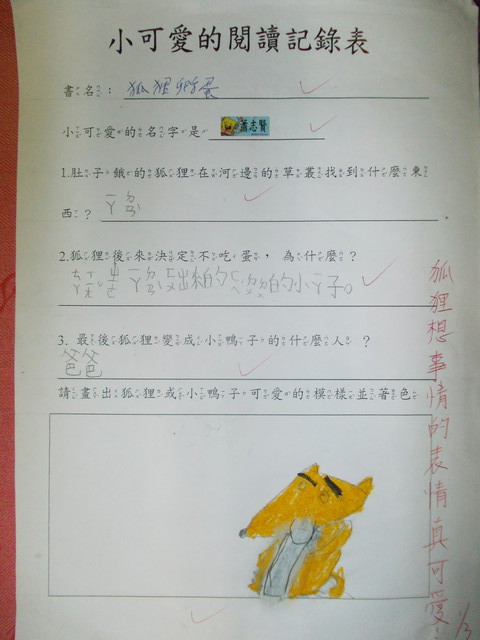 小可愛的閱讀記錄表
書名：狐狸孵蛋
小可愛的名字是 蕭志賢
1.肚子餓的狐狸在河邊的草叢找到什麼東
西？
2.狐狸後來決定不吃蛋，為什麼？
的小ㄧㄚ子。
3. 最後狐狸變成小鴨子的什麼人？
爸爸
請畫出狐狸或小鴨子可愛的模樣並著色
狐狸想事情的表情真可愛！
1/3